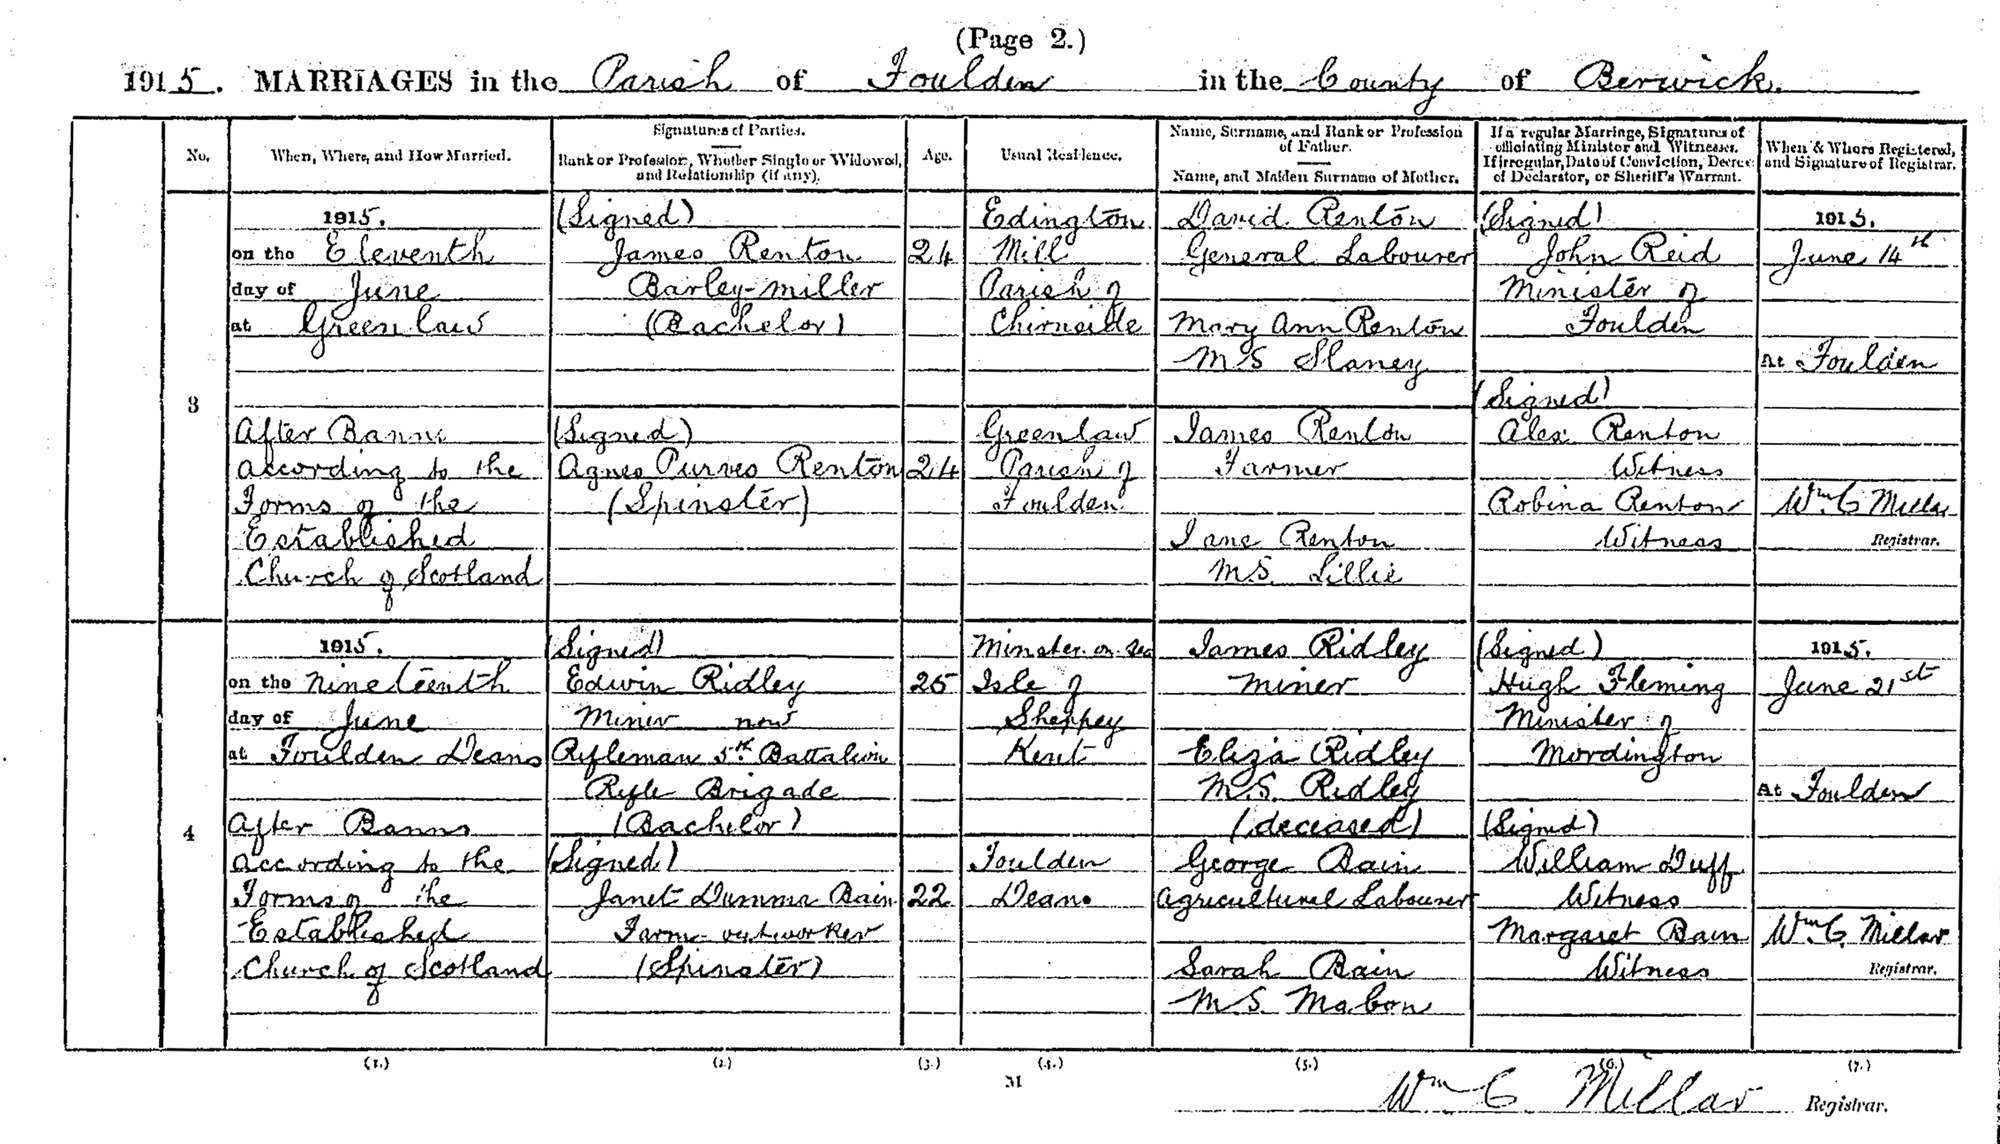 (Page 2.)
1915. MARRIAGES in the Parish of Foulden in the County of Berwick.
No.
When, Where, and How Married.
Signatures of Parties.
Rank or Profession, Whether Single or Widowed,
and Relationship (if any).
Age.
Usual Residence.
Name, Surname, and Rank or Profession
of Father.
Name, and Maiden Surname of Mother.
If a regular Marriage, Signatures of
officiating Minister and Witnesses.
If irregular, Date of Conviction, Decree
of Declarator, or Sheriff's Warrant.
When & Where Registered,
and Signature of Registrar.
3
1915.
on the Eleventh
day of June
at Greenlaw
After Banns
according to the
Forms of the
Established
Church of Scotland
(Signed)
James Renton
Barley-miller
(Bachelor)
(Signed)
Agnes Purves Renton
(Spinster)
24
24
Edington
Mill
Parish of
Chirnside
Greenlaw
Parish of
Foulden
David Renton
General Labourer
Mary Ann Renton
M.S Slaney
James Renton
Farmer
Jane Renton
M.S. Lillie
(Signed)
John Reid
Minister of
Foulden
(Signed)
Alex: Renton
Witness
Robina Renton
Witness
1915.
June 14th
At Foulden
Wm C Millar
Registrar.
4
1915.
on the Nineteenth
day of June
at Foulden Deans
After Banns
according to the
Forms of the
Established
Church of Scotland
(Signed)
Edwin Ridley
Miner now
Rifleman 5th Battalion
Rifle Brigade
(Bachelor)
(Signed)
Janet Dumma Bain
Farm-outworker
(Spinster)
25
22
Minster on Sea
Isle of
Sheppey
Kent
Foulden
Deans
James Ridley
Miner
Eliza Ridley
M.S. Ridley
(deceased)
George Bain
Agricultural Labourer
Sarah Bain
M.S. Mabon
(Signed)
Hugh Fleming
Minister of
Mordington
(Signed)
William Duff
Witness
Margaret Bain
Witness
1915.
June 21st
At Foulden
Wm C. Millar
Registrar.
(1.) (2.) (3.) (4.) (5.) (6.) (7.)
M
Wm C Millar Registrar.